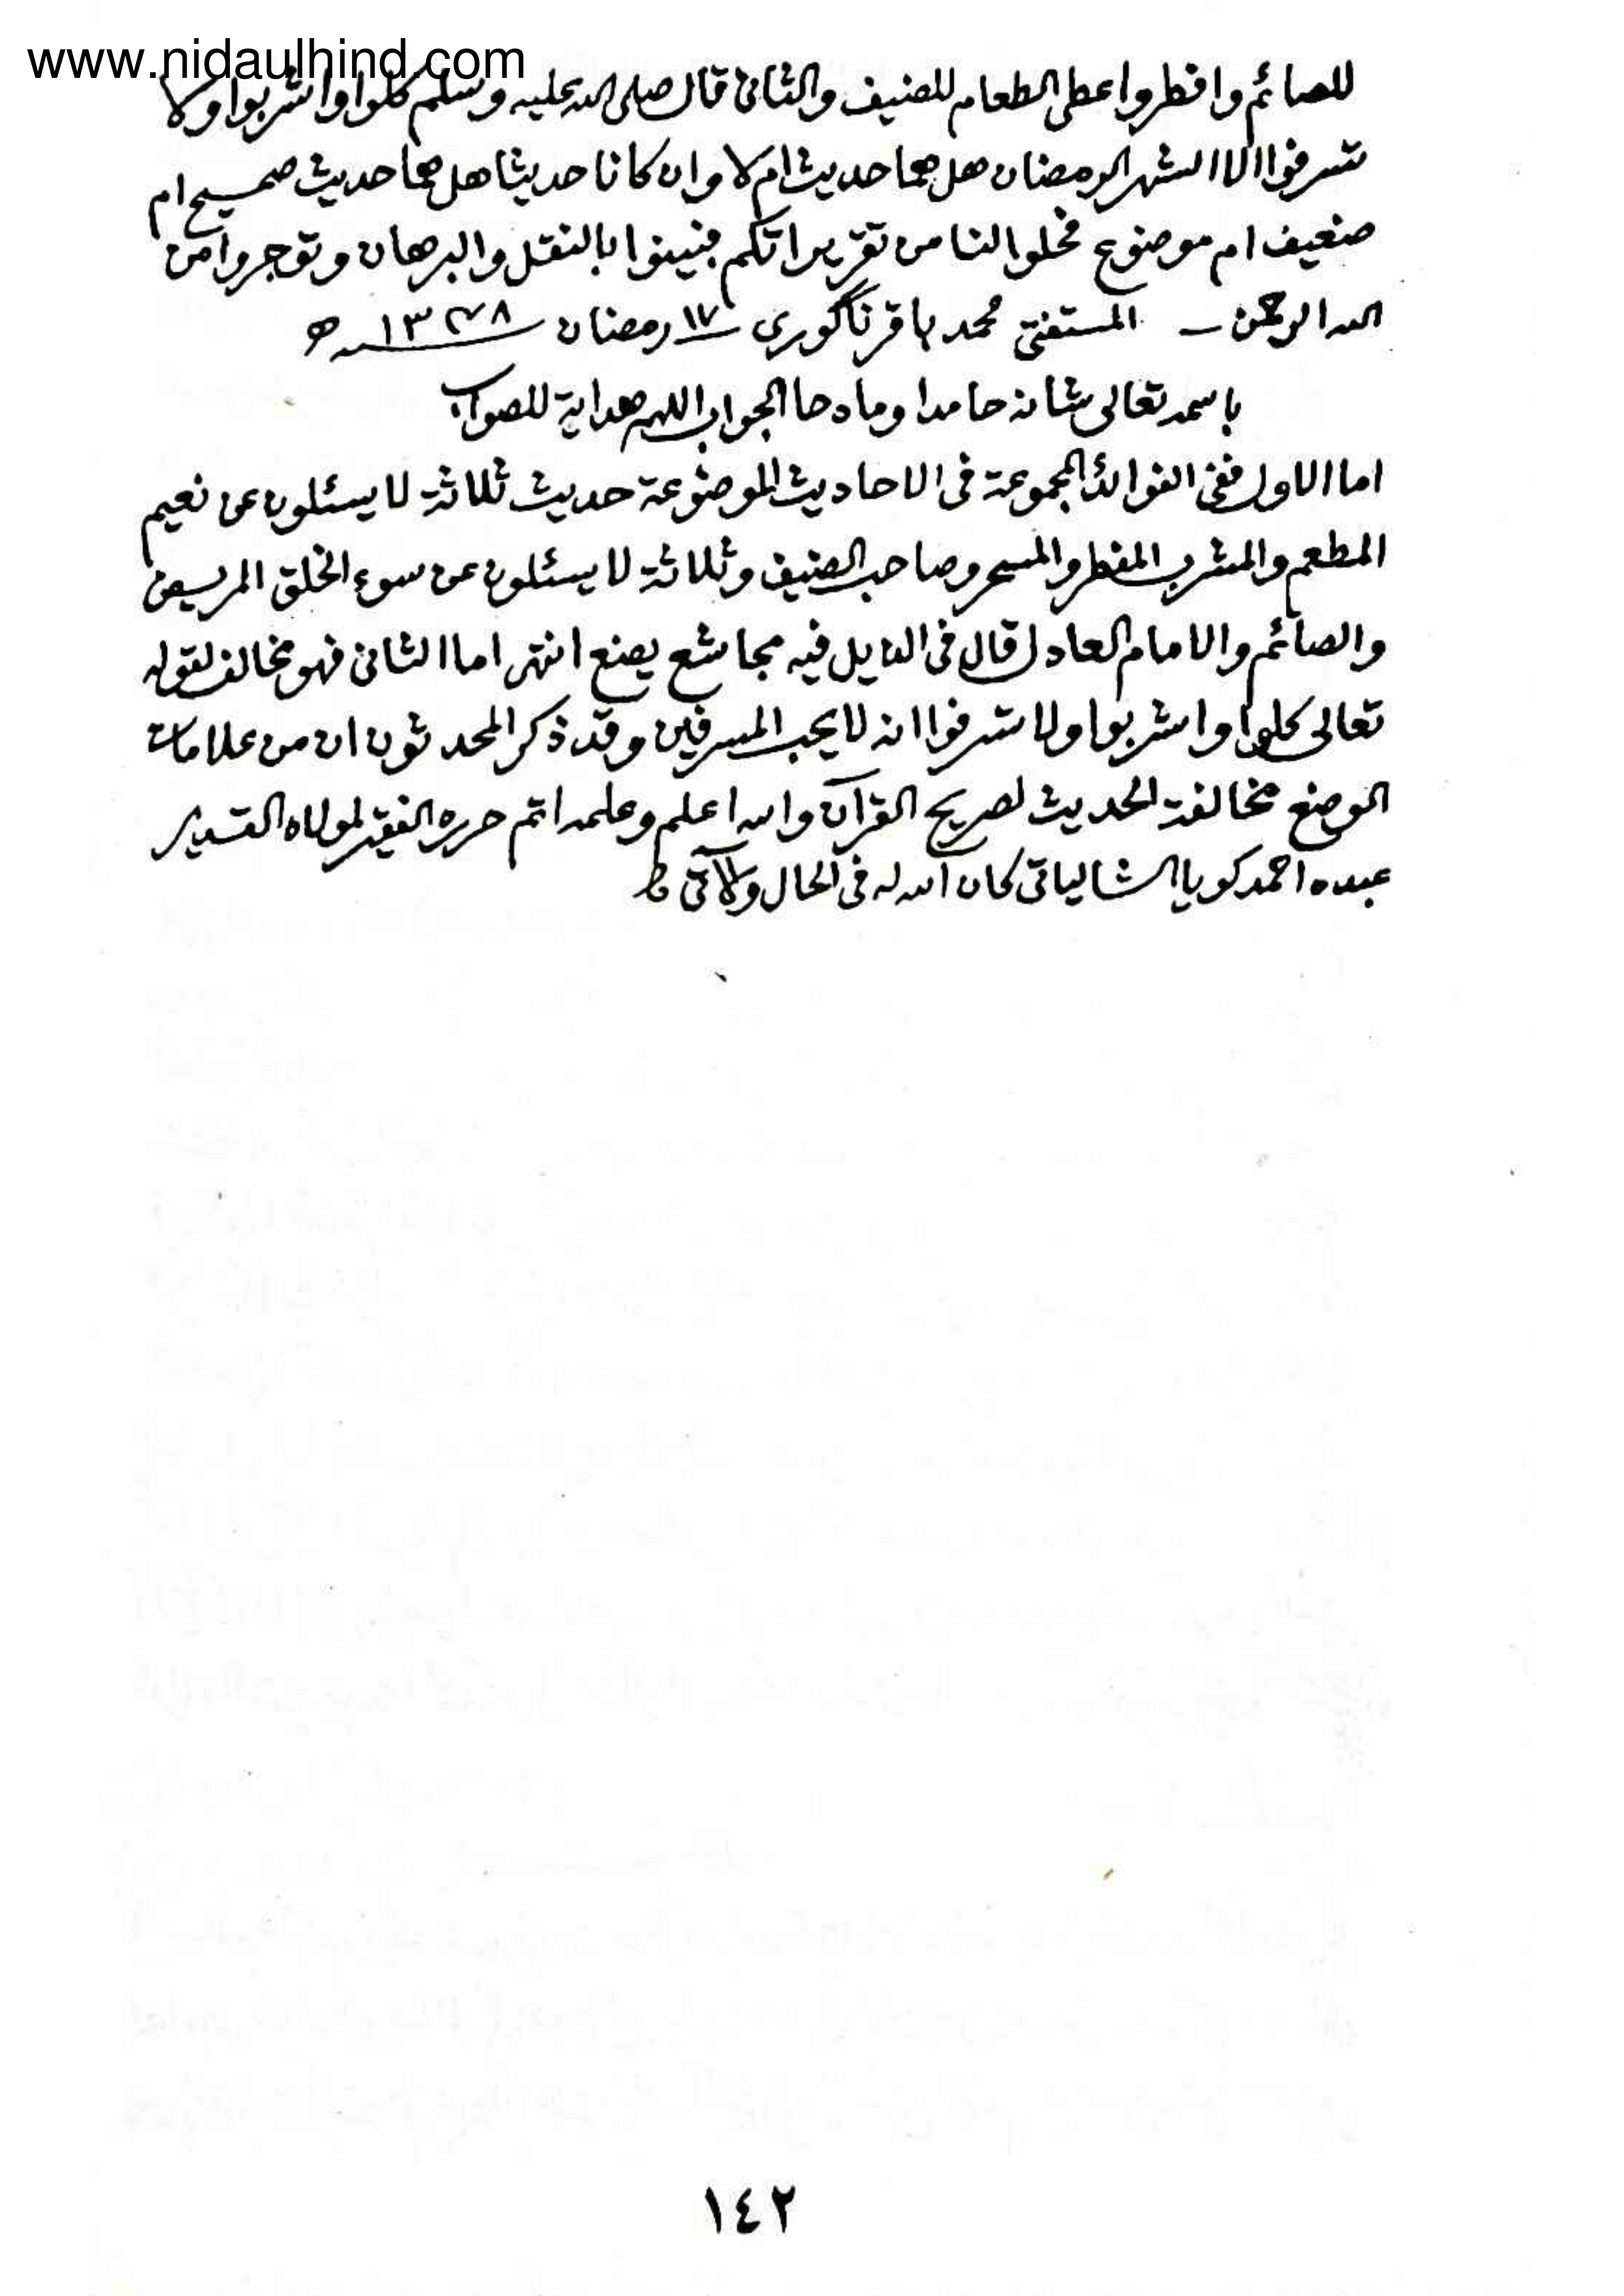 www.nidaulhind.com
للصائم وافطر واعطى الطعام للضيف والثانى قال صلى الله عليه وسلم كلوا واشربوا ولا
تسرفوا الا الشهر الرمضان هل هما حديث ام لا وان كانا حديثا هل هما حديث صحيح ام
ضعيف ام موضوع فحلوا لنا من تقريراتكم فبينوا بالنقل والبرهان وتوجروا من
الله الرحمن — المستفتى محمد باقر ناگورى ١٧ رمضان ١٣٤٨ ھ
باسمه تعالى شانه حامدا ومادحا الجواب اللهم هداية للصواب
اما الاول ففى الفوائد المجموعة فى الاحاديث الموضوعة حديث ثلاثة لا يسئلون عن نعيم
المطعم والمشرب المفطر والمتسحر وصاحب الضيف وثلاثة لا يسئلون عن سوء الخلق المريض
والصائم والامام العادل قال فى الذيل فيه مجاشع يضع انتهى اما الثانى فهو مخالف لقوله
تعالى كلوا واشربوا ولا تسرفوا انه لا يحب المسرفين وقد ذكر المحدثون ان من علامات
الوضع مخالفة الحديث لصريح القرآن والله اعلم وعلمه اتم حرره الفقير لمولاه القدير
عبده احمد كويا الشالياتى كان الله له فى الحال والآتى ط
١٤٢